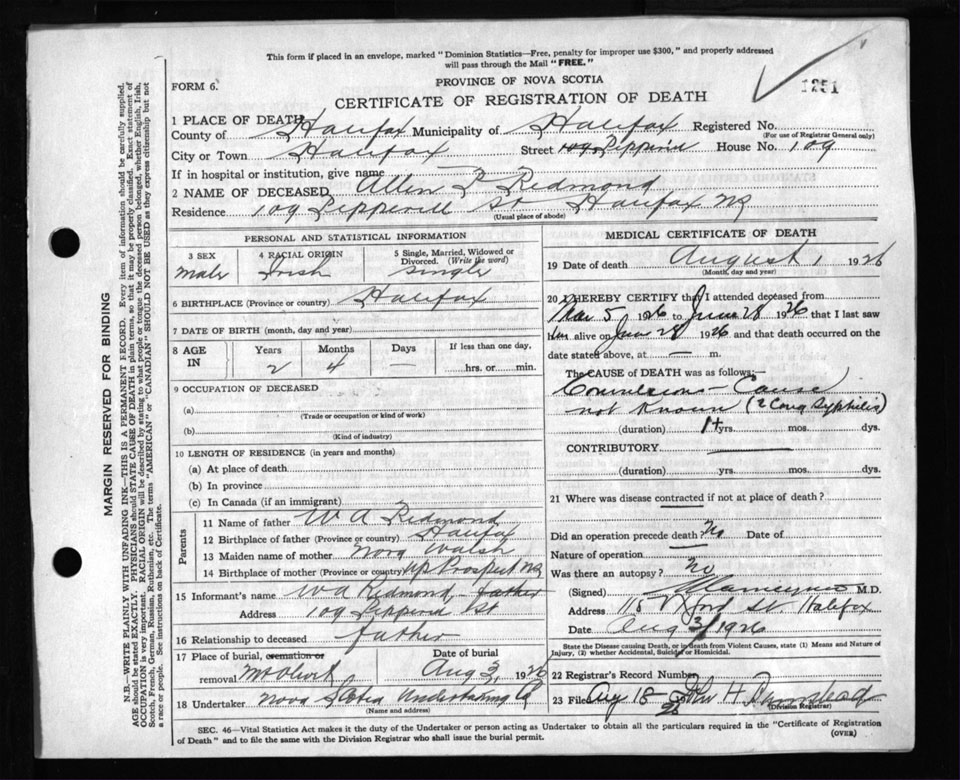 This form if placed in an envelope, marked "Dominion Statistics—Free, penalty for improper use $300," and properly addressed
will pass through the Mail "FREE."
FORM 6.
PROVINCE OF NOVA SCOTIA
1251
CERTIFICATE OF REGISTRATION OF DEATH
1 PLACE OF DEATH
County of Halifax Municipality of Halifax Registered No.
(For use of Registrar General only)
City or Town Halifax Street 109 Pepperell House No. 109
If in hospital or institution, give name
2 NAME OF DECEASED Allen P Redmond
Residence 109 Pepperell St Halifax NS
(Usual place of abode)
PERSONAL AND STATISTICAL INFORMATION
3 SEX
Male
4 RACIAL ORIGIN
Irish
5 Single, Married, Widowed or
Divorced. (Write the word)
Single
6 BIRTHPLACE (Province or country) Halifax
7 DATE OF BIRTH (month, day and year)
8 AGE
IN
Years
2
Months
4
Days
—
If less than one day,
hrs. or min.
9 OCCUPATION OF DECEASED
(a)
(Trade or occupation or kind of work)
(b)
(Kind of industry)
10 LENGTH OF RESIDENCE (in years and months)
(a) At place of death
(b) In province
(c) In Canada (if an immigrant)
Parents
11 Name of father W A Redmond
12 Birthplace of father (Province or country) Halifax
13 Maiden name of mother Nora Walsh
14 Birthplace of mother (Province or country) Up Prospect NS
15 Informant's name W A Redmond - father
Address 109 Pepperell St
16 Relationship to deceased father
17 Place of burial, cremation or
removal Mt Olivet
Date of burial
Aug 3, 1926
18 Undertaker Nova Scotia Undertaking Co
(Name and address)
MEDICAL CERTIFICATE OF DEATH
19 Date of death August 1 1926
(Month, day and year)
20 I HEREBY CERTIFY that I attended deceased from
Mar 5 1926 to June 28 1926 that I last saw
him alive on June 28 1926 and that death occurred on the
date stated above, at — m.
The CAUSE of DEATH was as follows:—
Convulsions - Cause
not known (? Cong Syphilis)
(duration) 1+ yrs. mos. dys.
CONTRIBUTORY
(duration) yrs. mos. dys.
21 Where was disease contracted if not at place of death?
Did an operation precede death? No Date of
Nature of operation
Was there an autopsy? No
(Signed) M.D.
Address 118 St Halifax
Date Aug 3/1926
State the Disease causing Death, or in death from Violent Causes, state (1) Means and Nature of
Injury, (2) whether Accidental, Suicidal or Homicidal.
22 Registrar's Record Number
23 Filed Aug 18 - 26 John H
(Division Registrar)
SEC. 46—Vital Statistics Act makes it the duty of the Undertaker or person acting as Undertaker to obtain all the particulars required in the "Certificate of Registration
of Death" and to file the same with the Division Registrar who shall issue the burial permit.
(OVER)
MARGIN RESERVED FOR BINDING
N.B.—WRITE PLAINLY WITH UNFADING INK—THIS IS A PERMANENT RECORD. Every item of information should be carefully supplied.
AGE should be stated EXACTLY. PHYSICIANS should STATE CAUSE OF DEATH in plain terms, so that it may be properly classified. Exact statement of
OCCUPATION is very important. RACIAL ORIGIN will be described by stating to what people or tongue the deceased person belonged, whether English, Irish,
Scotch, French, German, Russian, Ruthenian, etc. The terms "AMERICAN" or "CANADIAN" SHOULD NOT BE USED as they express citizenship but not
a race or people. See instructions on back of Certificate.